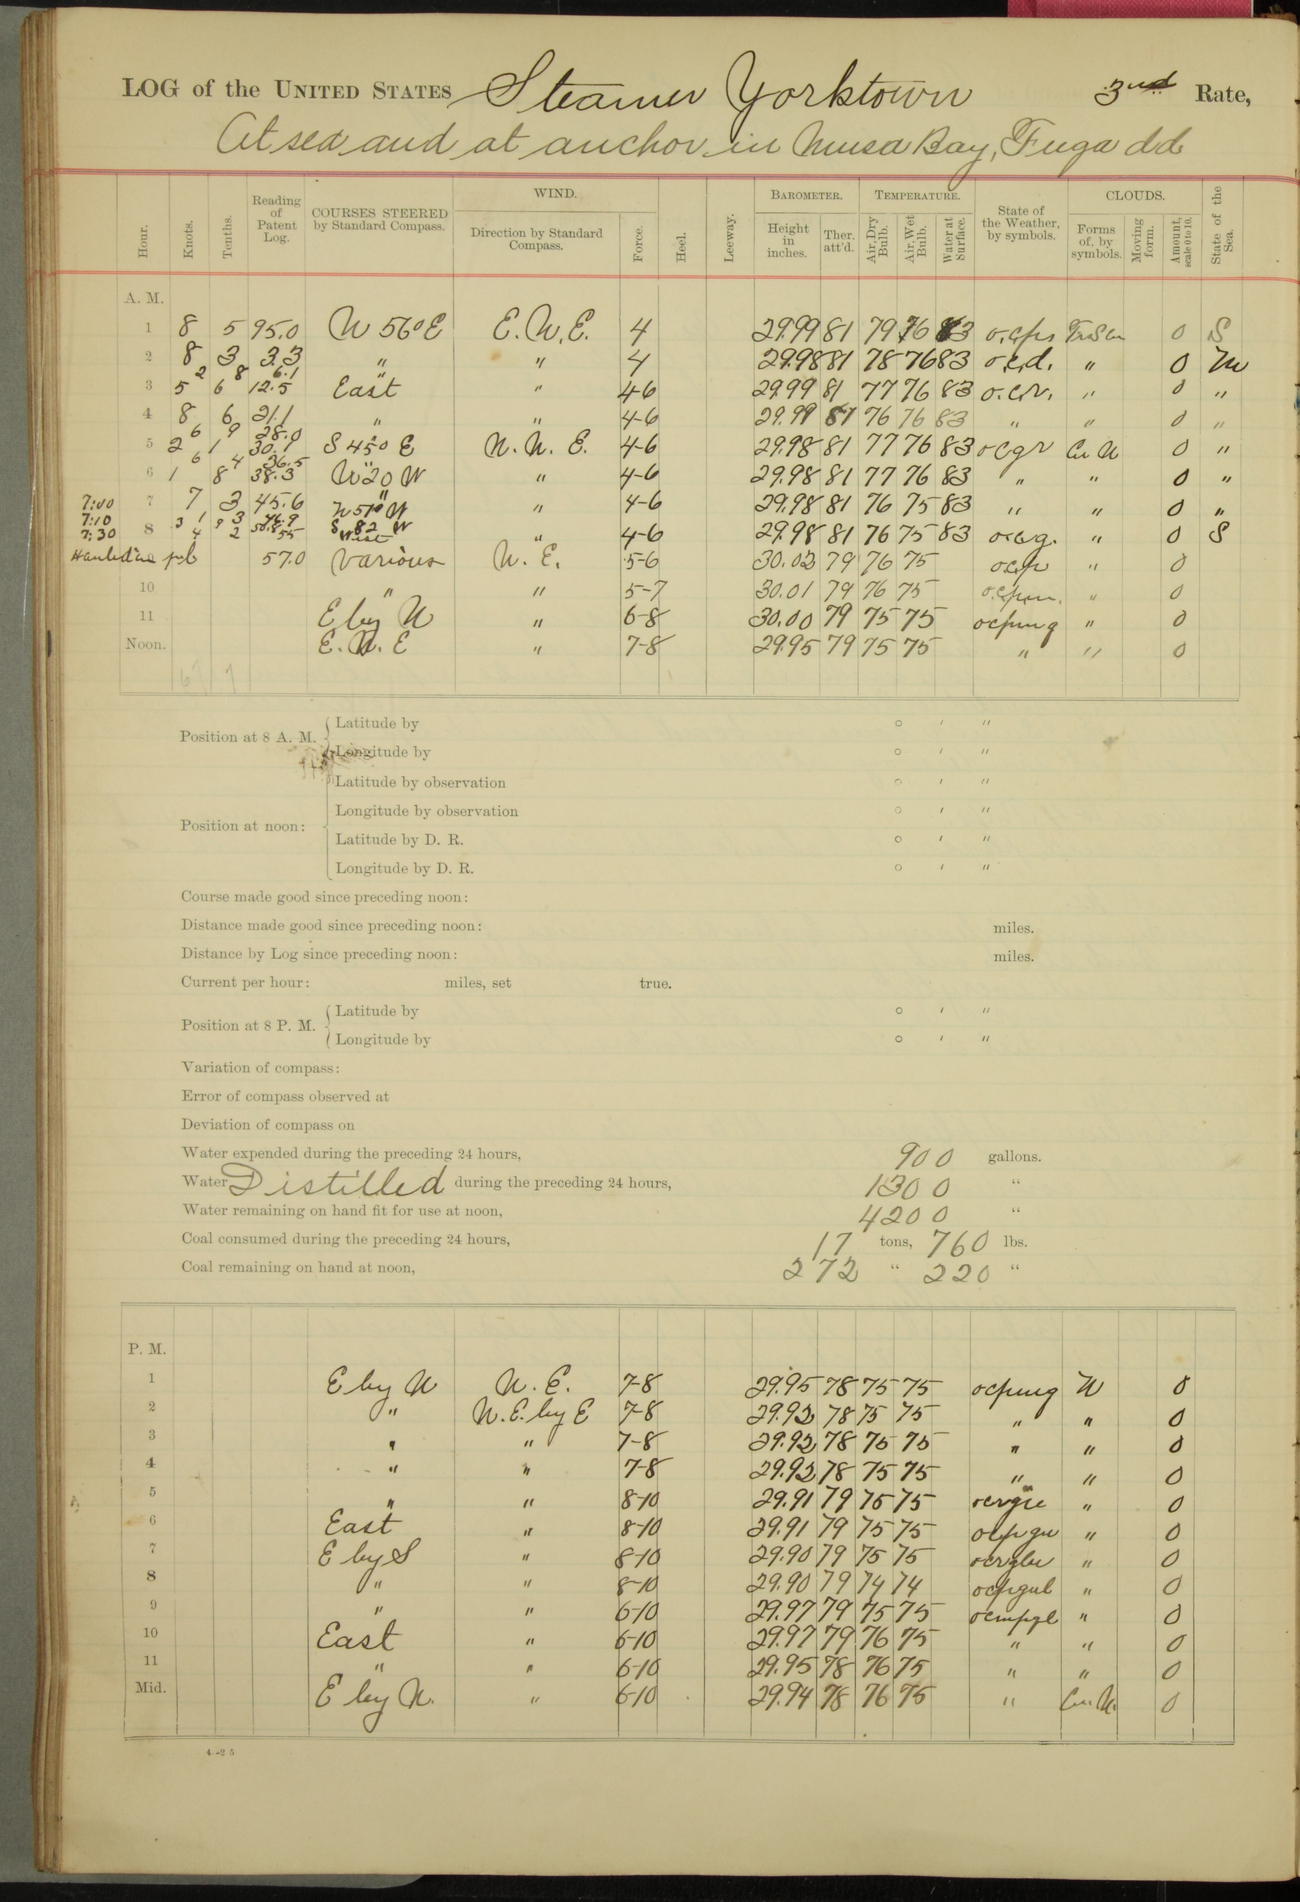 LOG of the UNITED STATES Steamer Yorktown 3nd Rate,
At sea and at anchor in Musa Bay, Fuga Id.
WIND. BAROMETER. TEMPERATURE. CLOUDS.
Hour. Knots. Tenths. Reading of Patent Log. COURSES STEERED by Standard Compass. Direction by Standard Compass. Force. Heel. Leeway. Height in inches. Ther. att'd. Air, Dry Bulb. Air, Wet Bulb. Water at Surface. State of the Weather, by symbols. Forms of, by symbols. Moving form. Amount, scale 0 to 10. State of the Sea.
A. M.
1 8 5 95.0 N 56° E E. N. E. 4 29.99 81 79 76 83 o.c.p.s 0 S
2 8 3 3.3 " " 4 29.98 81 78 76 83 o.c.d. " 0 M
2 8 6.1
3 5 6 12.5 East " 4-6 29.99 81 77 76 83 o.c.r. " 0 "
4 8 6 21.1 " " 4-6 29.99 81 76 76 83 " " 0 "
6 9 28.0
5 2 1 30.1 S 45° E N. N. E. 4-6 29.98 81 77 76 83 ocgr Cu N 0 "
6 4 36.5
6 1 8 38.3 N 20 W " 4-6 29.98 81 77 76 83 " " 0 "
7:00 7 7 3 45.6 " " 4-6 29.98 81 76 75 83 " " 0 "
7:10 1 3 46.9 N 51° W
7:30 3 9 S 82 W
8 4 2 55 West " 4-6 29.98 81 76 75 83 ocqg. " 0 S
Hauled in p.l. 57.0 various N. E. 5-6 30.02 79 76 75 ocp " 0
10 " " 5-7 30.01 79 76 75 " 0
11 E by N " 6-8 30.00 79 75 75 ocpmg " 0
Noon. E. N. E " 7-8 29.95 79 75 75 " " 0
67 7
Position at 8 A. M. Latitude by ° ′ ″
Longitude by ° ′ ″
Position at noon: Latitude by observation ° ′ ″
Longitude by observation ° ′ ″
Latitude by D. R. ° ′ ″
Longitude by D. R. ° ′ ″
Course made good since preceding noon:
Distance made good since preceding noon: miles.
Distance by Log since preceding noon: miles.
Current per hour: miles, set true.
Position at 8 P. M. Latitude by ° ′ ″
Longitude by ° ′ ″
Variation of compass:
Error of compass observed at
Deviation of compass on
Water expended during the preceding 24 hours, 900 gallons.
Water Distilled during the preceding 24 hours, 1300 "
Water remaining on hand fit for use at noon, 4200 "
Coal consumed during the preceding 24 hours, 17 tons, 760 lbs.
Coal remaining on hand at noon, 272 " 220 "
P. M.
1 E by N N. E. 7-8 29.95 78 75 75 ocpmg N 0
2 " N. E. by E 7-8 29.92 78 75 75 " " 0
3 " " 7-8 29.92 78 75 75 " " 0
4 " " 7-8 29.92 78 75 75 " " 0
5 " " 8-10 29.91 79 75 75 " 0
6 East " 8-10 29.91 79 75 75 " 0
7 E by S " 8-10 29.90 79 75 75 " 0
8 " " 8-10 29.90 79 74 74 " 0
9 " " 6-10 29.97 79 75 75 " 0
10 East " 6-10 29.97 79 76 75 " " 0
11 " " 6-10 29.95 78 76 75 " " 0
Mid. E by N. " 6-10 29.94 78 76 75 " Cu. N. 0
4-25